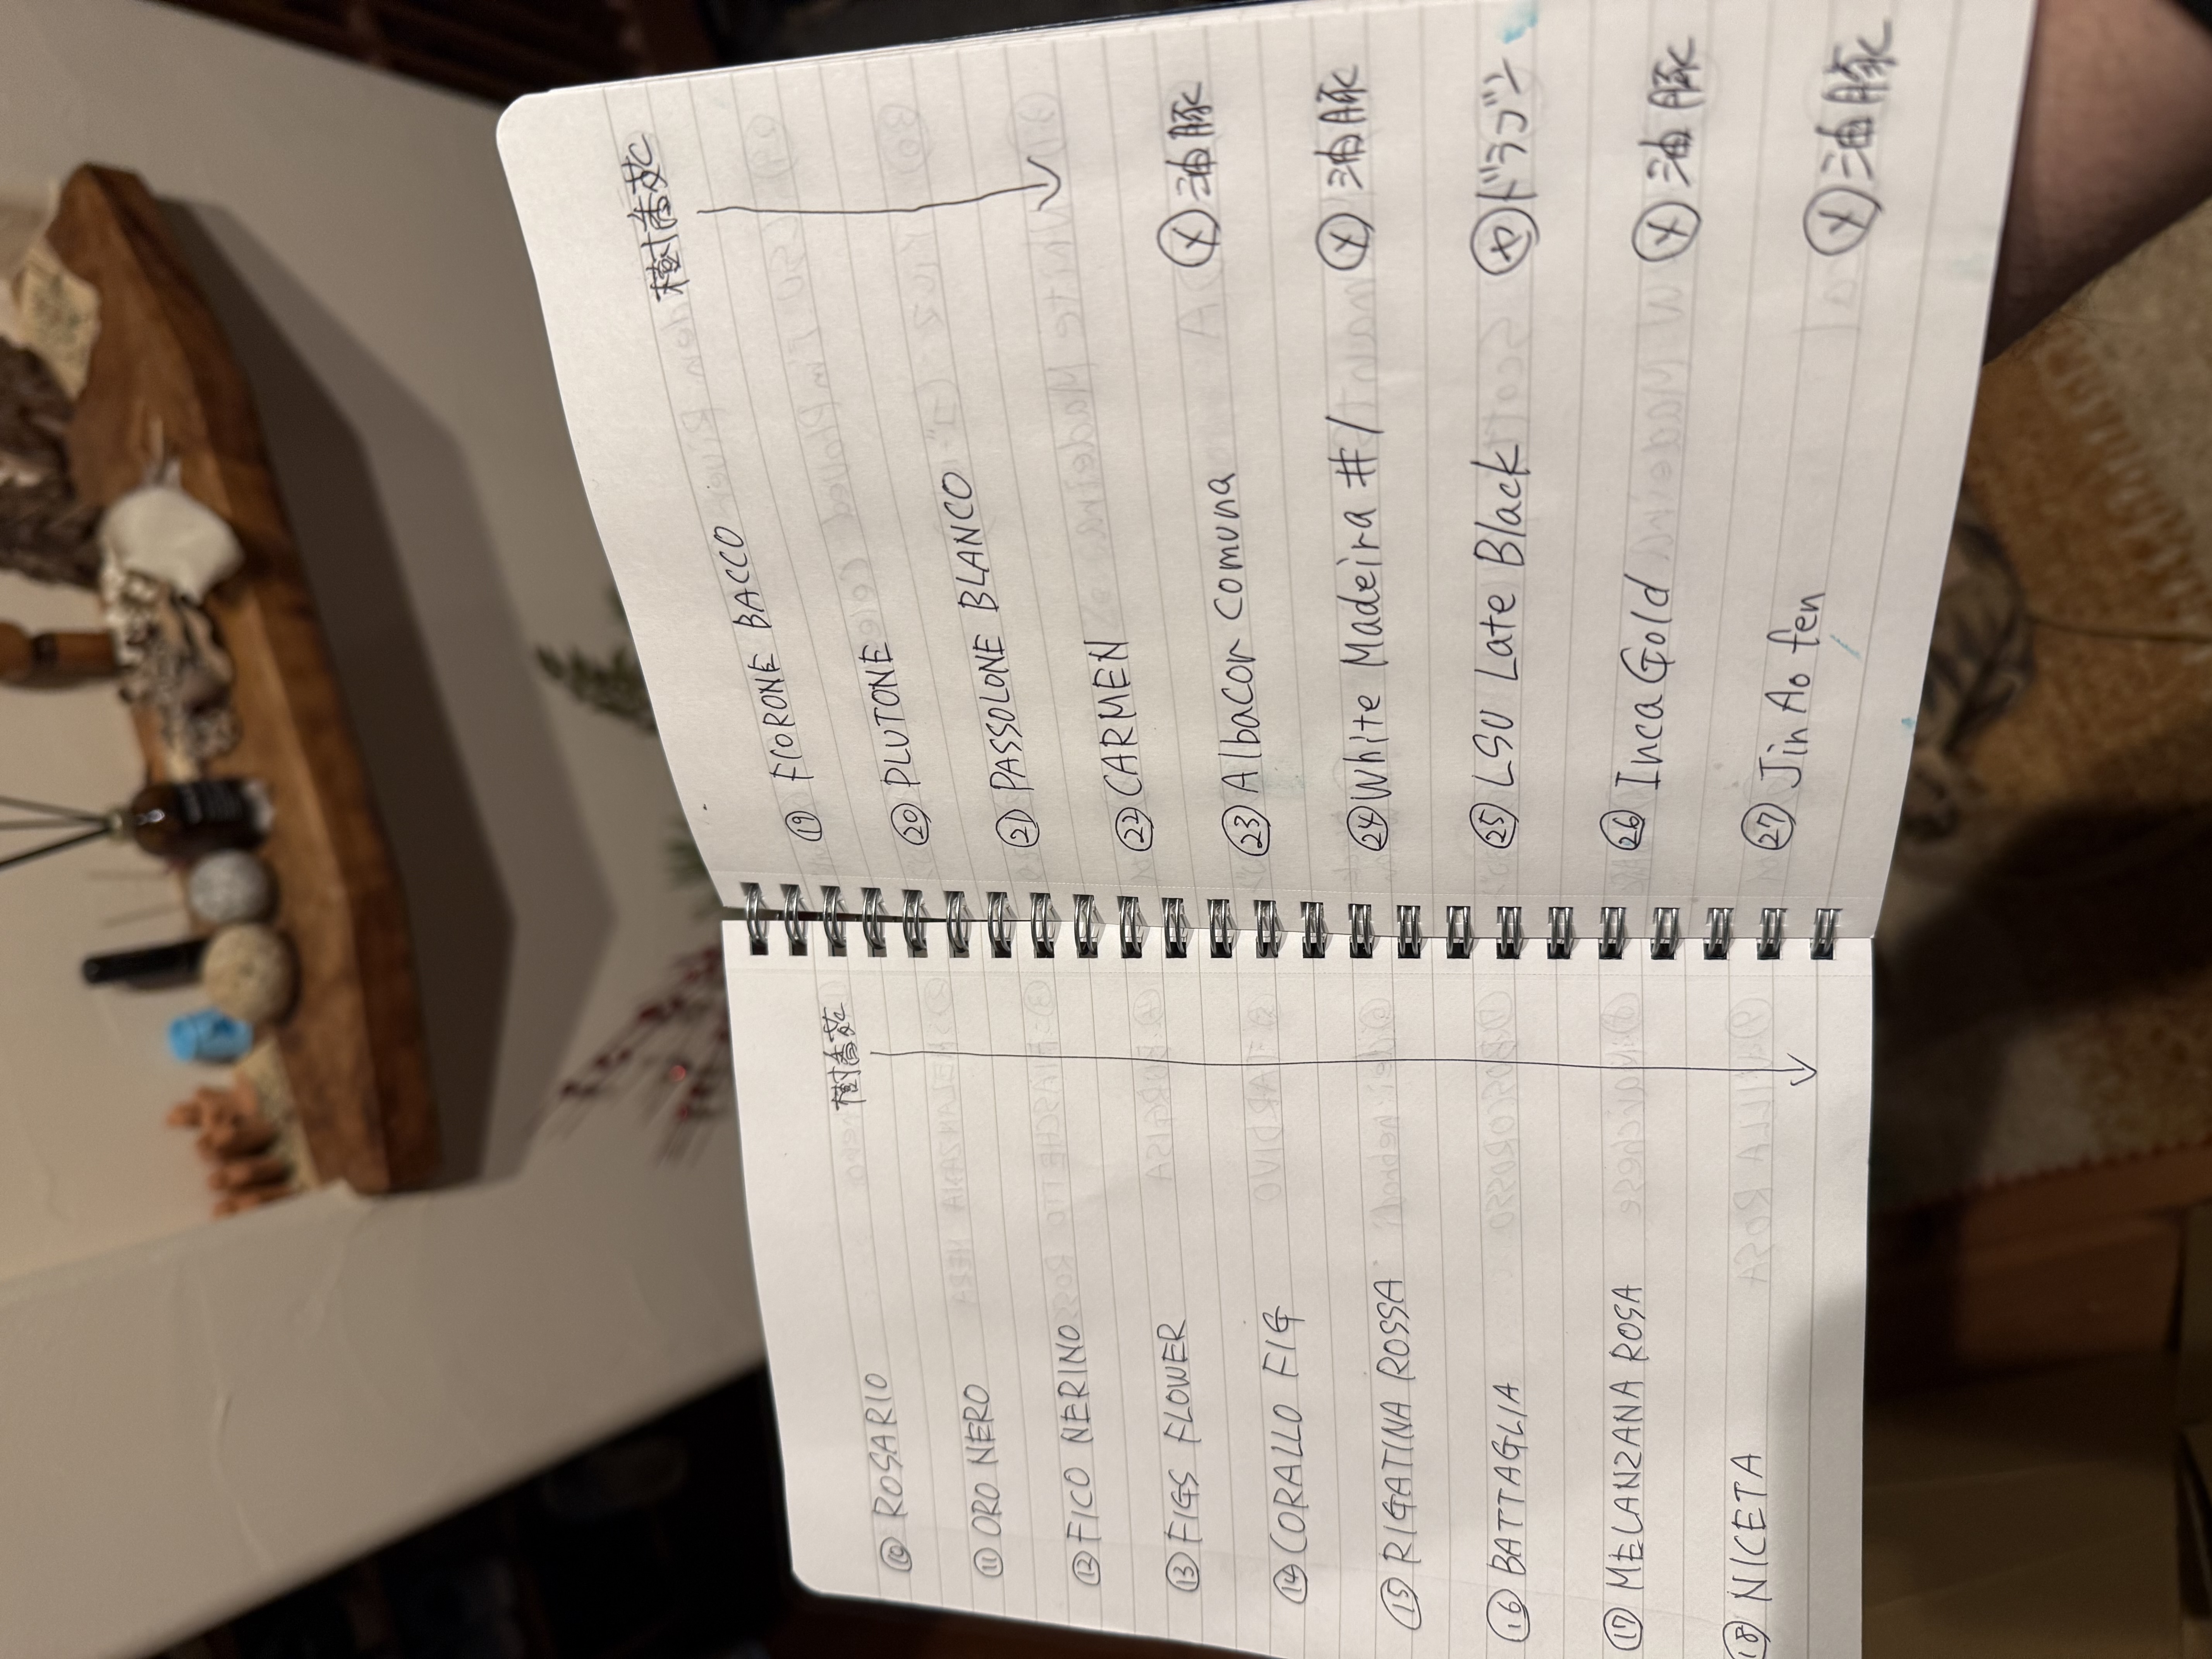 樹香苑
⑩ ROSARIO
⑪ ORO NERO
⑫ FICO NERINO
⑬ FIGS FLOWER
⑭ CORALLO FIG
⑮ RIGATINA ROSSA
⑯ BATTAGLIA
⑰ MELANZANA ROSA
⑱ NICETA
樹香苑
⑲ FIORONE BACCO
⑳ PLUTONE
㉑ PASSOLONE BLANCO
㉒ CARMEN
㉓ Albacor Comuna ⓧ油豚
㉔ White Madeira #1 ⓧ油豚
㉕ LSU Late Black ドラゴン
㉖ Inca Gold ⓧ油豚
㉗ Jin Ao fen ⓧ油豚